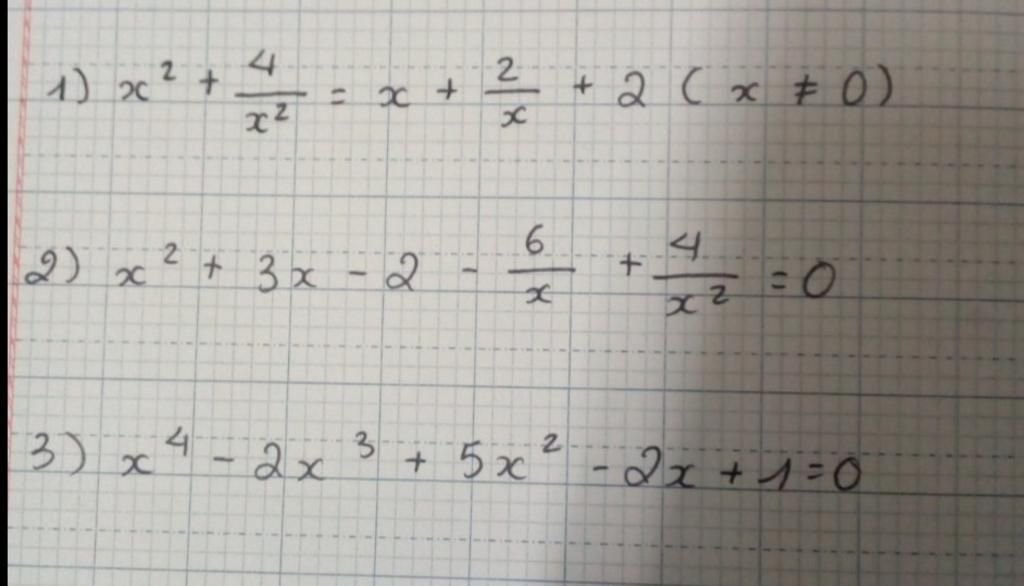 1) x² + 4/x² = x + 2/x + 2 ( x ≠ 0)
2) x² + 3x - 2 - 6/x + 4/x² = 0
3) x⁴ - 2x³ + 5x² - 2x + 1 = 0